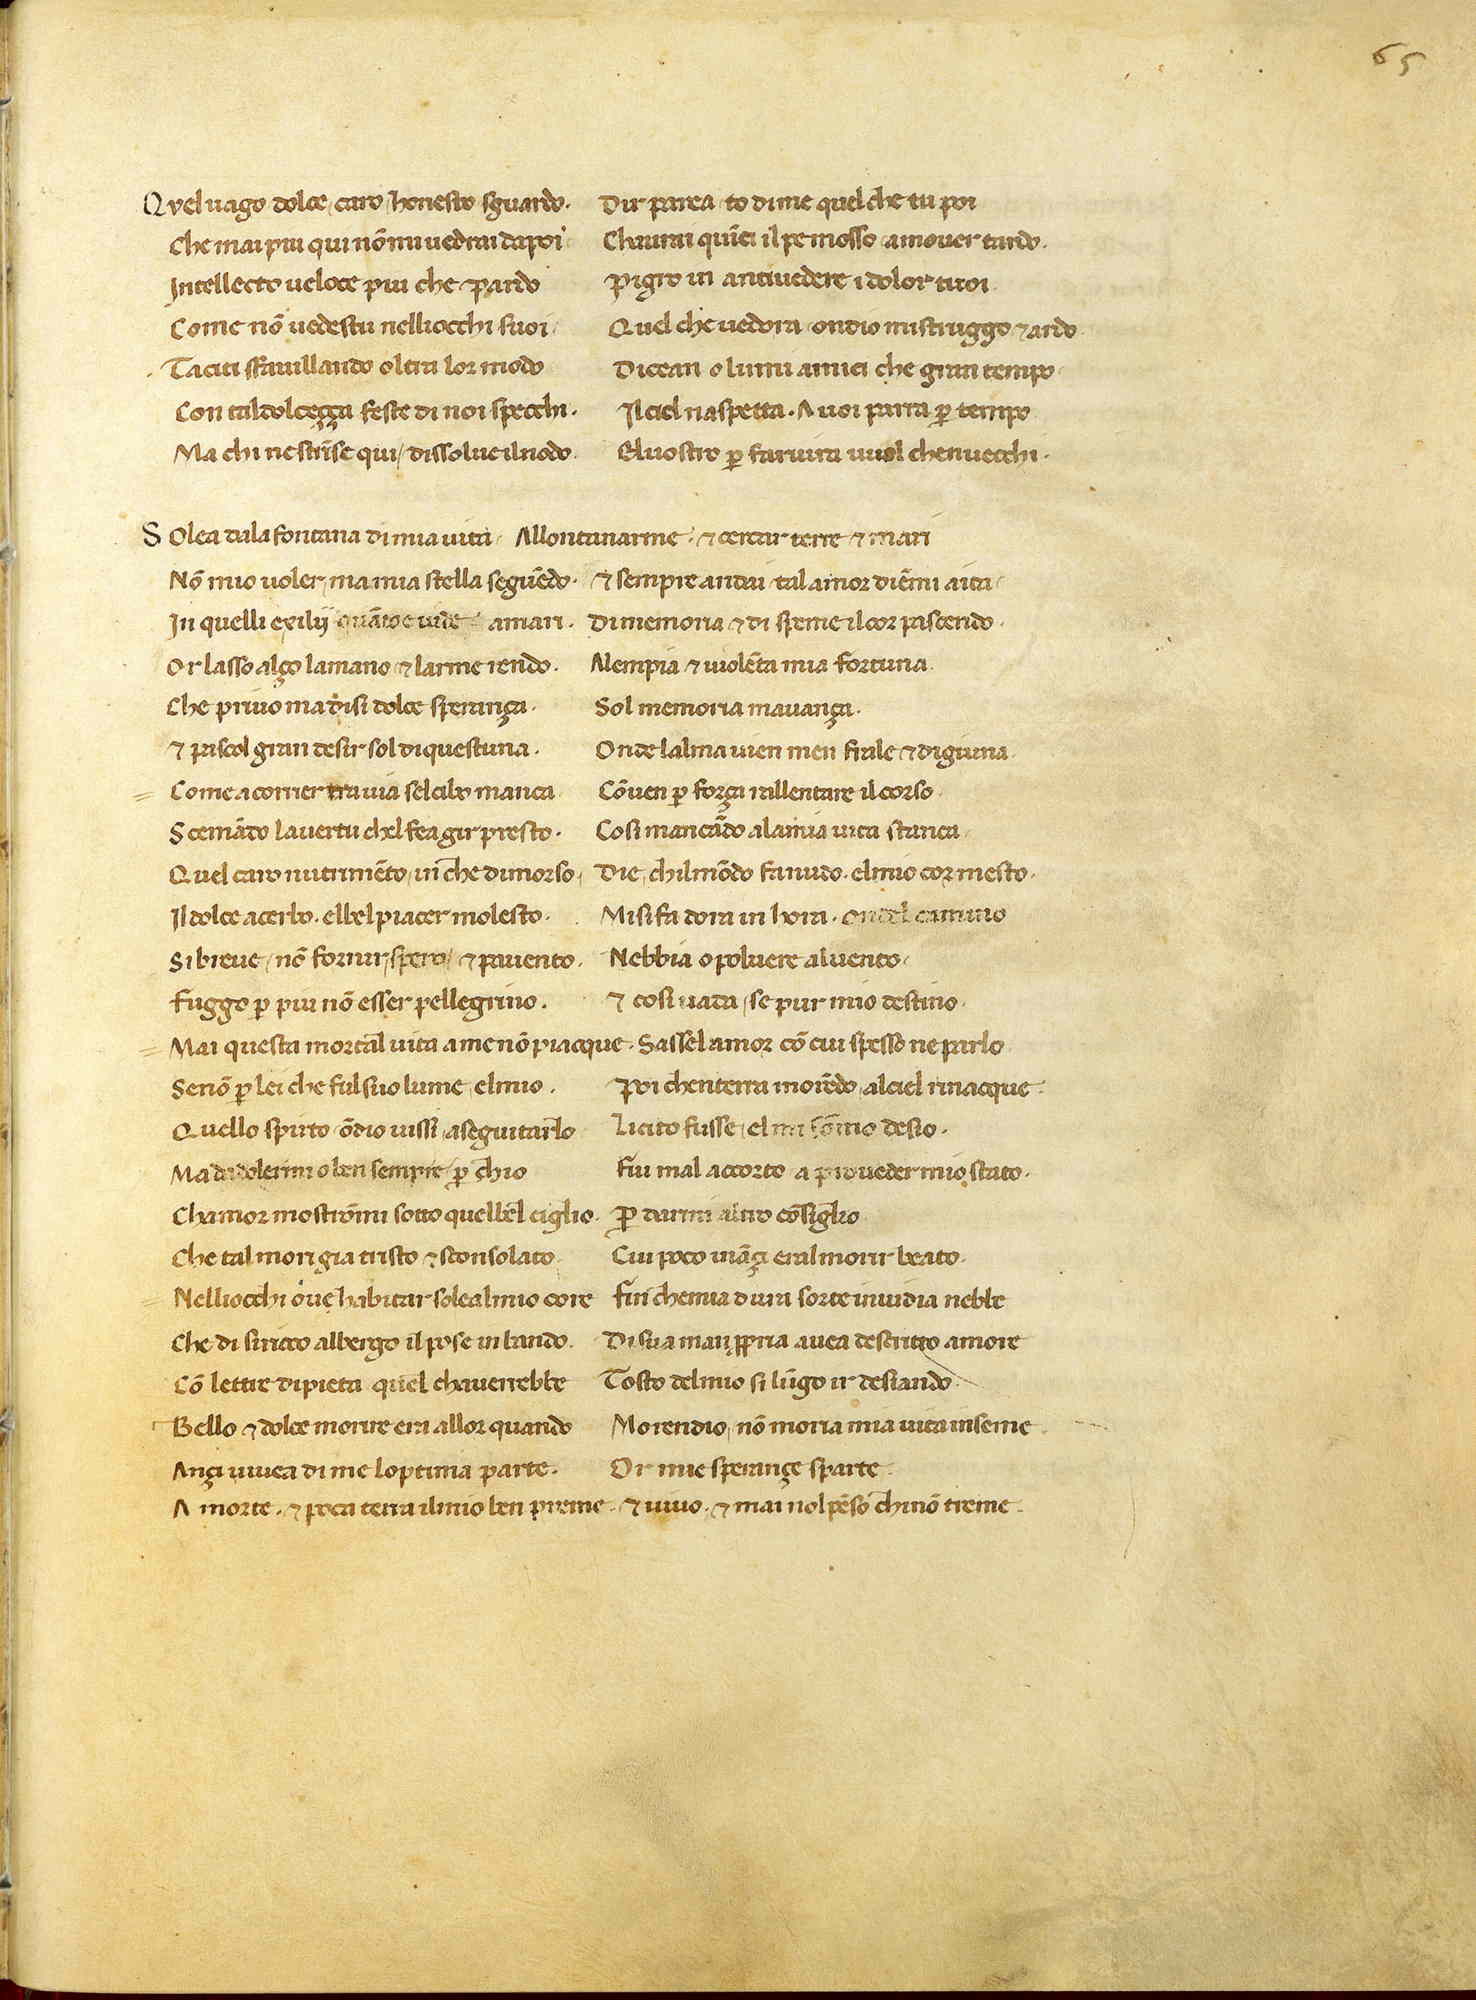 65
Qvel uago dolce, caro, honesto sguardo. Dir parea, to di me quel che tu poi
Che mai piu qui nō mi uedrai da poi Chaurai quīci il pe mosso amouer tardo.
Intellecto ueloce piu che pardo Pigro in antiuedere i dolor tuoi
Come nō uedestu nelliocchi suoi Quel che ued ora, ondio mi struggo ⁊ ardo
Taciti sfauillando oltra lor modo Dicean o lumi amici che gran tempo
Con tal dolceçça feste di noi specchi. Il ciel naspetta. A uoi parra ꝑ tempo
Ma chi ne strīse qui, dissolue il nodo. El uostro ꝑ far uira uuol chenuecchi.
SOlea dala fontana di mia uita Allontanarme. ⁊ cercar terre ⁊ mari
Nō mio uoler, ma mia stella seguēdo. ⁊ sempre andai tal amor diēmi aita
In quelli exilij quāto e uide amari. Di memoria ⁊ di speme il cor pascendo.
Or lasso alço la mano ⁊ larme rendo. Alempia ⁊ uiolēta mia fortuna
Che priuo ma di si dolce sperança. Sol memoria mauança.
⁊ pascol gran desir sol di questuna. Onde lalma uien men frale ⁊ digiuna
Come a corrier tra uia sel cibo manca Cōuen ꝑ força rallentare il corso
Scemādo la uertu chel fea gir presto. Cosi mancādo ala mia uita stanca
Quel caro nutrimēto, in che di morso, Die, chil mōdo fa nudo. el mio cor mesto.
Il dolce acerbo. el bel piacer molesto. Mi si fa dora in hora. ondel camino
Si breue, nō fornir, spero, ⁊ pauento. Nebbia o poluere al uento.
Fuggo ꝑ piu nō esser pellegrino. ⁊ cosi uada, se pur mio destino.
Mai questa mortal uita a me nō piacque. Sassel amor cō cui spesso ne parlo
Se nō ꝑ lei che ful suo lume, el mio. Poi chen terra morēdo, al ciel rinacque
Quello spirto ōdio uissi, aseguitarlo Licito fusse, el mi sōmo desio.
Ma da dolermi o ben sempre, ꝑ chio Fui mal accorto a proueder mio stato.
Chamor mostrōmi sotto quel bel ciglio. ꝑ darmi altro cōsiglio
Che tal mori gia tristo ⁊ sconsolato Cui poco ināçi eral morir beato.
Nelliocchi oue habitar solea l mio core Fin che mia dura sorte inuidia nebbe
Che di si ricco albergo il pose in bando. Di sua man ꝓpria auea descritto amore
Cō lettre di pieta quel chauerrebbe Tosto del mio si lūgo ir desiando
Bello ⁊ dolce morire era allor quando Morendio, nō moria mia uita inseme
Ançi uiuea di me loptima parte. Or mie sperançe sparte
A morte. ⁊ poca terra il mio ben preme. ⁊ uiuo. ⁊ mai nol pēso chi nō treme.